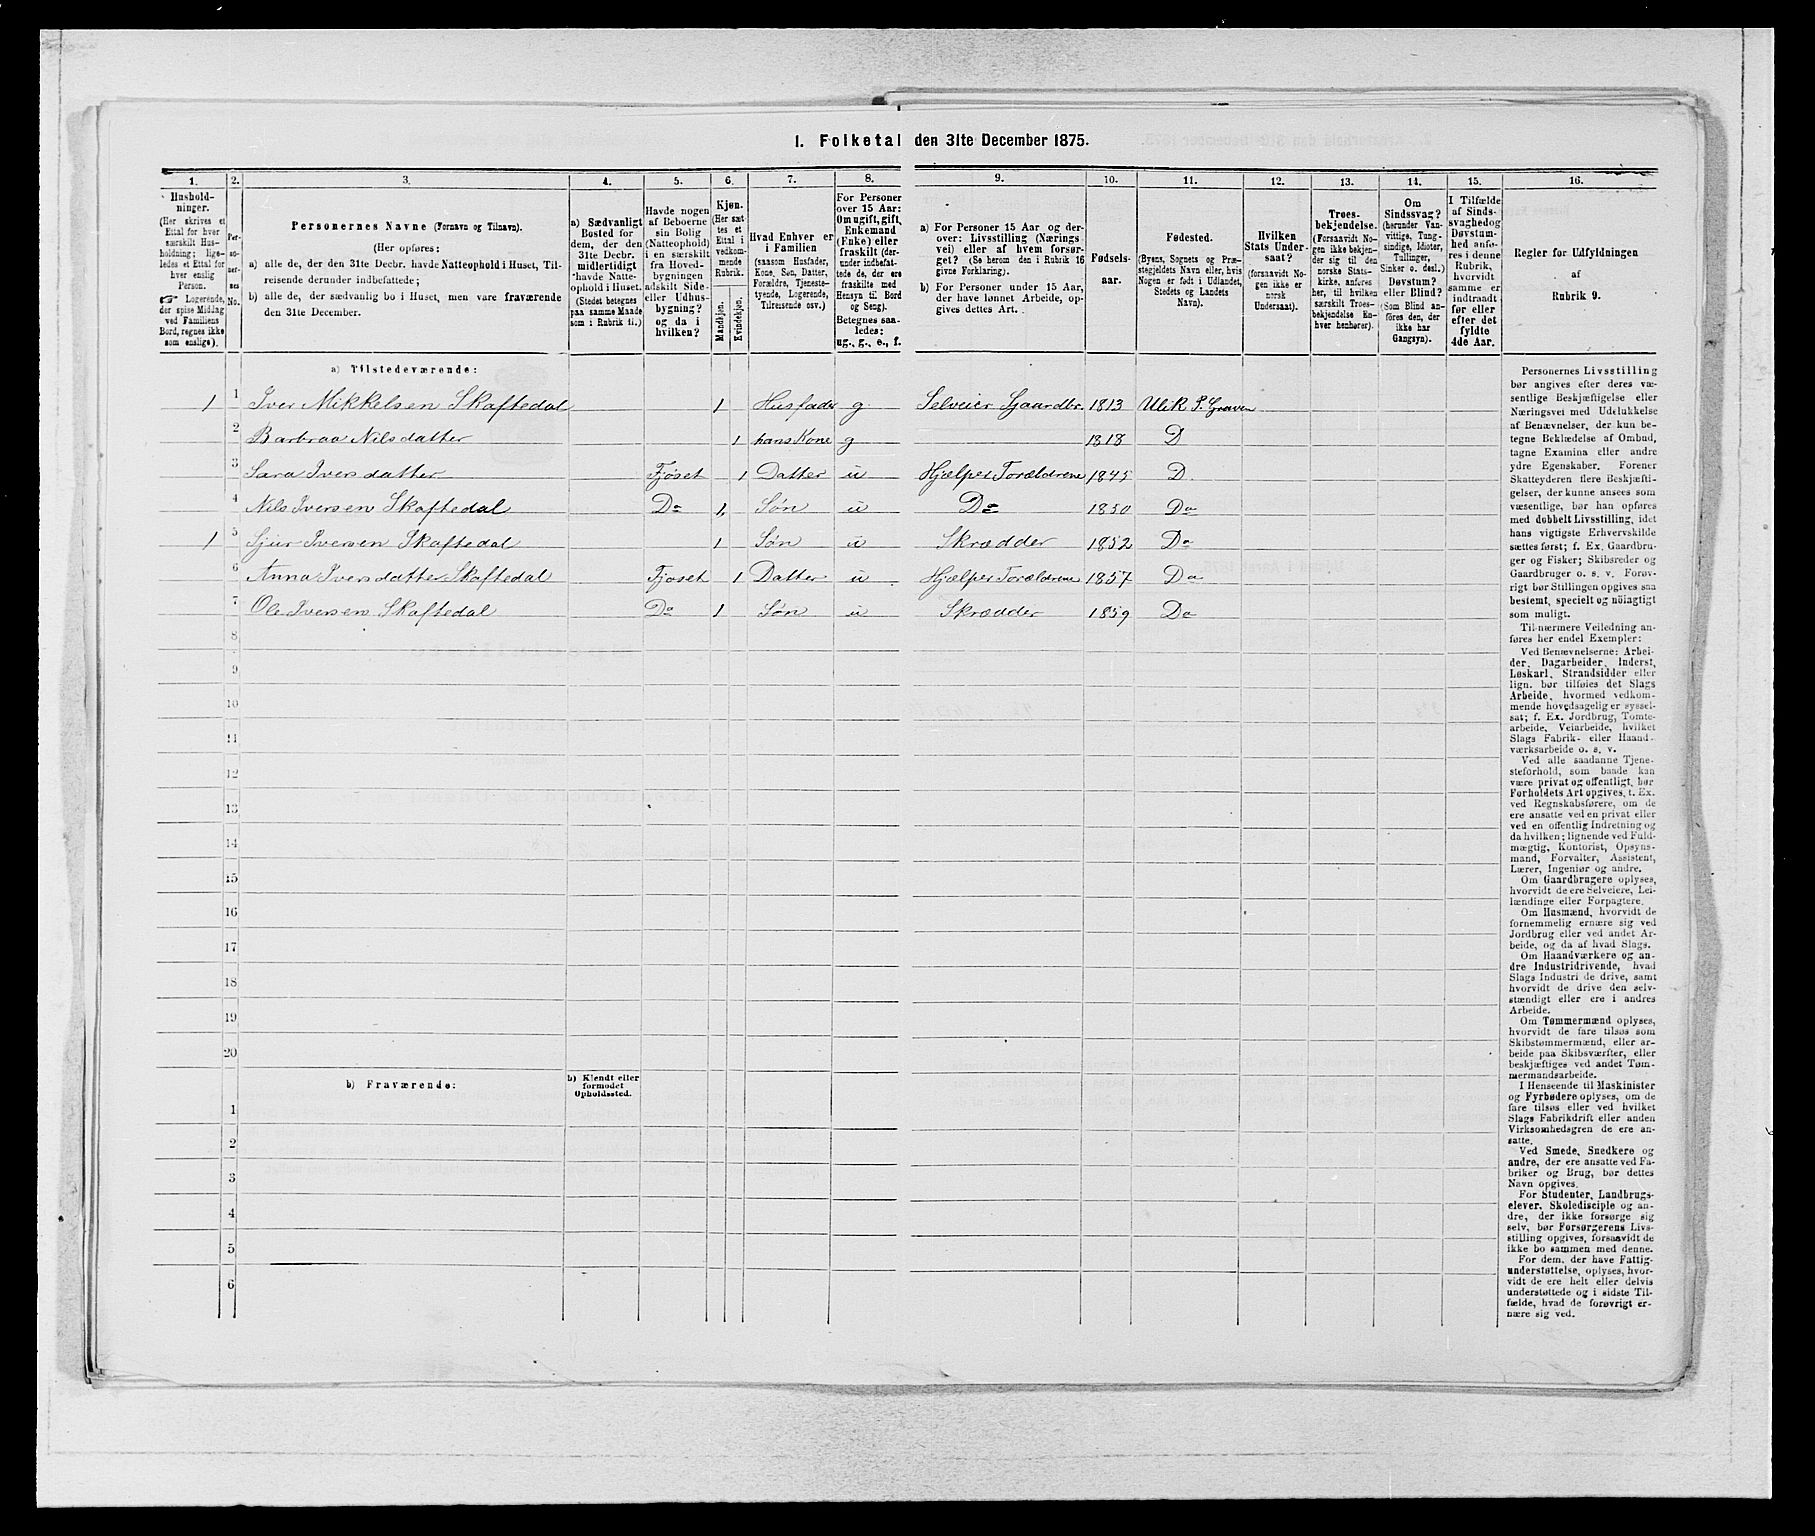 1. Folketal den 31te December 1875.
1. 2. 3. 4. 5. 6. 7. 8. 9. 10. 11. 12. 13. 14. 15. 16.
Husholdninger.
(Her skrives et
Ettal for hver
særskilt Hus-
holdning; lige-
ledes et Ettal for
hver enslig
Person.
☞ Logerende,
der spise Middag
ved Familiens
Bord, regnes ikke
som enslige).
Per-
so-
ner-
nes
No.
Personernes Navne (Fornavn og Tilnavn).
(Her opføres:
a) alle de, der den 31te Decbr. havde Natteophold i Huset, Til-
reisende derunder indbefattede;
b) alle de, der sædvanlig bo i Huset, men vare fraværende
den 31te December.
a) Sædvanligt
Bosted for
dem, der den
31te Decbr.
midlertidigt
havde Natte-
ophold i Huset.
(Stedet betegnes
paa samme Maade
som i Rubrik 11.)
Havde nogen
af Beboerne
sin Bolig
(Natteophold)
i en særskilt
fra Hoved-
bygningen
adskilt Side-
eller Udhus-
bygning?
og da i
hvilken?
Kjøn.
(Her sæt-
tes et
Ettal i
vedkom-
mende
Rubrik.
Mandkjøn.
Kvindekjøn.
Hvad Enhver er
i Familien
(saasom Husfader,
Kone, Søn, Datter,
Forældre, Tjeneste-
tyende, Logerende,
Tilreisende osv.)
For Personer
over 15 Aar:
Om ugift, gift,
Enkemand
(Enke) eller
fraskilt (der-
under indbefat-
tede de, der ere
fraskilte med
Hensyn til Bord
og Seng).
Betegnes saa-
ledes:
ug., g., e., f.
a) For Personer 15 Aar og der-
over: Livsstilling (Nærings-
vei) eller af hvem forsør-
get? (Se herom den i Rubrik 16
givne Forklaring).
b) For Personer under 15 Aar,
der have lønnet Arbeide, op-
gives dettes Art.
Fødsels-
aar.
Fødested.
(Byens, Sognets og Præ-
stegjeldets Navn eller, hvis
Nogen er født i Udlandet,
Stedets og Landets
Navn).
Hvilken
Stats Under-
saat?
(forsaavidt No-
gen ikke er
norsk
Undersaat).
Troes-
bekjendelse.
(Forsaavidt No-
gen ikke bekjen-
der sig til den
norske Stats-
kirke, anføres
her, til hvilken
særskilt Troes-
bekjendelse En-
hver henhører).
Om
Sindssvag?
(herunder Van-
vittige, Tung-
sindige, Idioter,
Tullinger,
Sinker o. desl.)
Døvstum?
eller Blind?
(Som Blind an-
føres den, der
ikke har
Gangsyn).
I Tilfælde
af Sinds-
svaghed og
Døvstum-
hed anfø-
res i denne
Rubrik,
hvorvidt
samme er
indtraadt
før eller
efter det
fyldte
4de Aar.
Regler for Udfyldningen
af
Rubrik 9.
a) Tilstedeværende:
1 1 Iver Mikkelsen Skaftedal 1 Husfader g Selveier Gaardbr. 1813 Ulvik P. Graven
2 Barbraa Nilsdatter 1 hans Kone g 1818 D
3 Sara Iversdatter Fjøset 1 Datter u Hjælper Forældrene 1845 D.
4 Nils Iversen Skaftedal Do 1 Søn u Do 1850 Do
1 5 Sjur Iversen Skaftedal 1 Søn u Skrædder 1852 Do
6 Anna Iversdatter Skaftedal Fjøset 1 Datter u Hjælper Forældrene 1857 Do
7 Ole Iversen Skaftedal Do 1 Søn u Skrædder 1859 Do
8
9
10
11
12
13
14
15
16
17
18
19
20
b) Fraværende:
b) Kjendt eller
formodet
Opholdssted.
1
2
3
4
5
6
Personernes Livsstilling
bør angives efter deres væ-
sentlige Beskjæftigelse eller
Næringsvei med Udelukkelse
af Benævnelser, der kun be-
tegne Beklædelse af Ombud,
tagne Examina eller andre
ydre Egenskaber. Forener
Skatteyderen flere Beskjæfti-
gelser, der kunne ansees som
væsentlige, bør han opføres
med dobbelt Livsstilling, idet
hans vigtigste Erhvervskilde
sættes først; f. Ex. Gaardbru-
ger og Fisker; Skibsreder og
Gaardbruger o. s. v. Forøv-
rigt bør Stillingen opgives saa
bestemt, specielt og nøiagtigt
som muligt.
Til nærmere Veiledning an-
føres her endel Exempler:
Ved Benævnelserne: Arbei-
der, Dagarbeider, Inderst,
Løskarl, Strandsidder eller
lign. bør tilføies det Slags
Arbeide, hvormed vedkom-
mende hovedsagelig er syssel-
sat; f. Ex. Jordbrug, Tomte-
arbeide, Veiarbeide, hvilket
Slags Fabrik- eller Haand-
værksarbeide o. s. v.
Ved alle saadanne Tjene-
steforhold, som baade kan
være privat og offentligt, bør
Forholdets Art opgives, t. Ex.
ved Regnskabsførere, om de
ere ansatte ved en privat eller
ved en offentlig Indretning og
da hvilken; lignende ved Fuld-
mægtig, Kontorist, Opsyns-
mand, Forvalter, Assistent,
Lærer, Ingeniør og andre.
Om Gaardbrugere oplyses,
hvorvidt de ere Selveiere, Lei-
lændinge eller Forpagtere.
Om Husmænd, hvorvidt de
fornemmelig ernære sig ved
Jordbrug eller ved andet Ar-
beide, og da af hvad Slags.
Om Haandværkere og an-
dre Industridrivende, hvad
Slags Industri de drive, samt
hvorvidt de drive den selv-
stændigt eller ere i andres
Arbeide.
Om Tømmermænd oplyses,
hvorvidt de fare tilsøs som
Skibstømmermænd, eller ar-
beide paa Skibsværfter, eller
beskjæftiges ved andet Tøm-
mermandsarbeide.
I Henseende til Maskinister
og Fyrbødere oplyses, om de
fare tilsøs eller ved hvilket
Slags Fabrikdrift eller anden
Virksomhedsgren de ere an-
satte.
Ved Smede, Snedkere og
andre, der ere ansatte ved Fa-
briker og Brug, bør dettes
Navn opgives.
For Studenter, Landbrugs-
elever, Skoledisciple og an-
dre, der ikke forsørge sig
selv, bør Forsørgerens Livs-
stilling opgives, forsaavidt de
ikke bo sammen med denne.
For dem, der have Fattig-
understøttelse, oplyses, hvor-
vidt de ere helt eller delvis
understøttede og i sidste Til-
fælde, hvad de forøvrigt er-
nære sig ved.